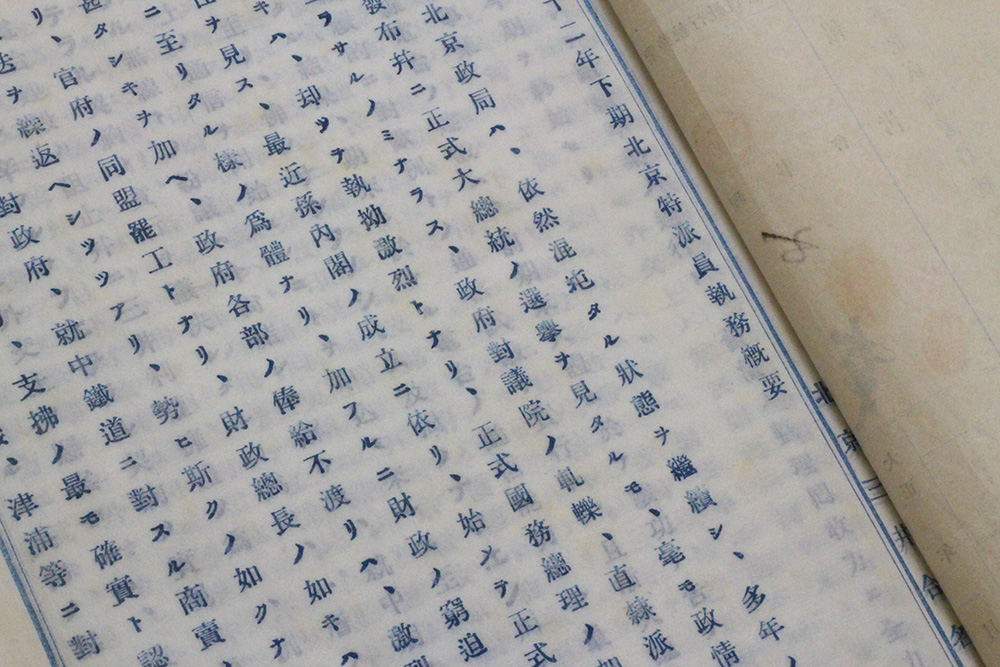 十二年下期北京特派員執務概要
北京政局ハ、依然混沌タル狀態ヲ繼續シ、多年ノ
發布幷ニ正式大總統ノ選擧ヲ見タルモ、毫モ政情
ラサルノミナラス、政府對議院ノ軋轢、且直隸派
ハ、却ツテ執拗激烈トナリ、正式國務總理ノ
ヲ見ス、最近孫內閣ノ成立ニ依リ、始メテ正式
ニ至リタル樣ノ爲體ナリ、加フルニ財政ノ窮迫
タシキヲ加ヘ、政府各部ノ俸給不渡リハ、激
リ、官府ノ同盟罷工トナリ、財政總長ノ如キハ
ヲ繰返ヘシツツアリ、勢ヒ斯クノ如クナ
對政府、就中鐵道ニ對スル商賣
、支拂ノ最モ確實ト認
、津浦等ニ對
北京三井合名